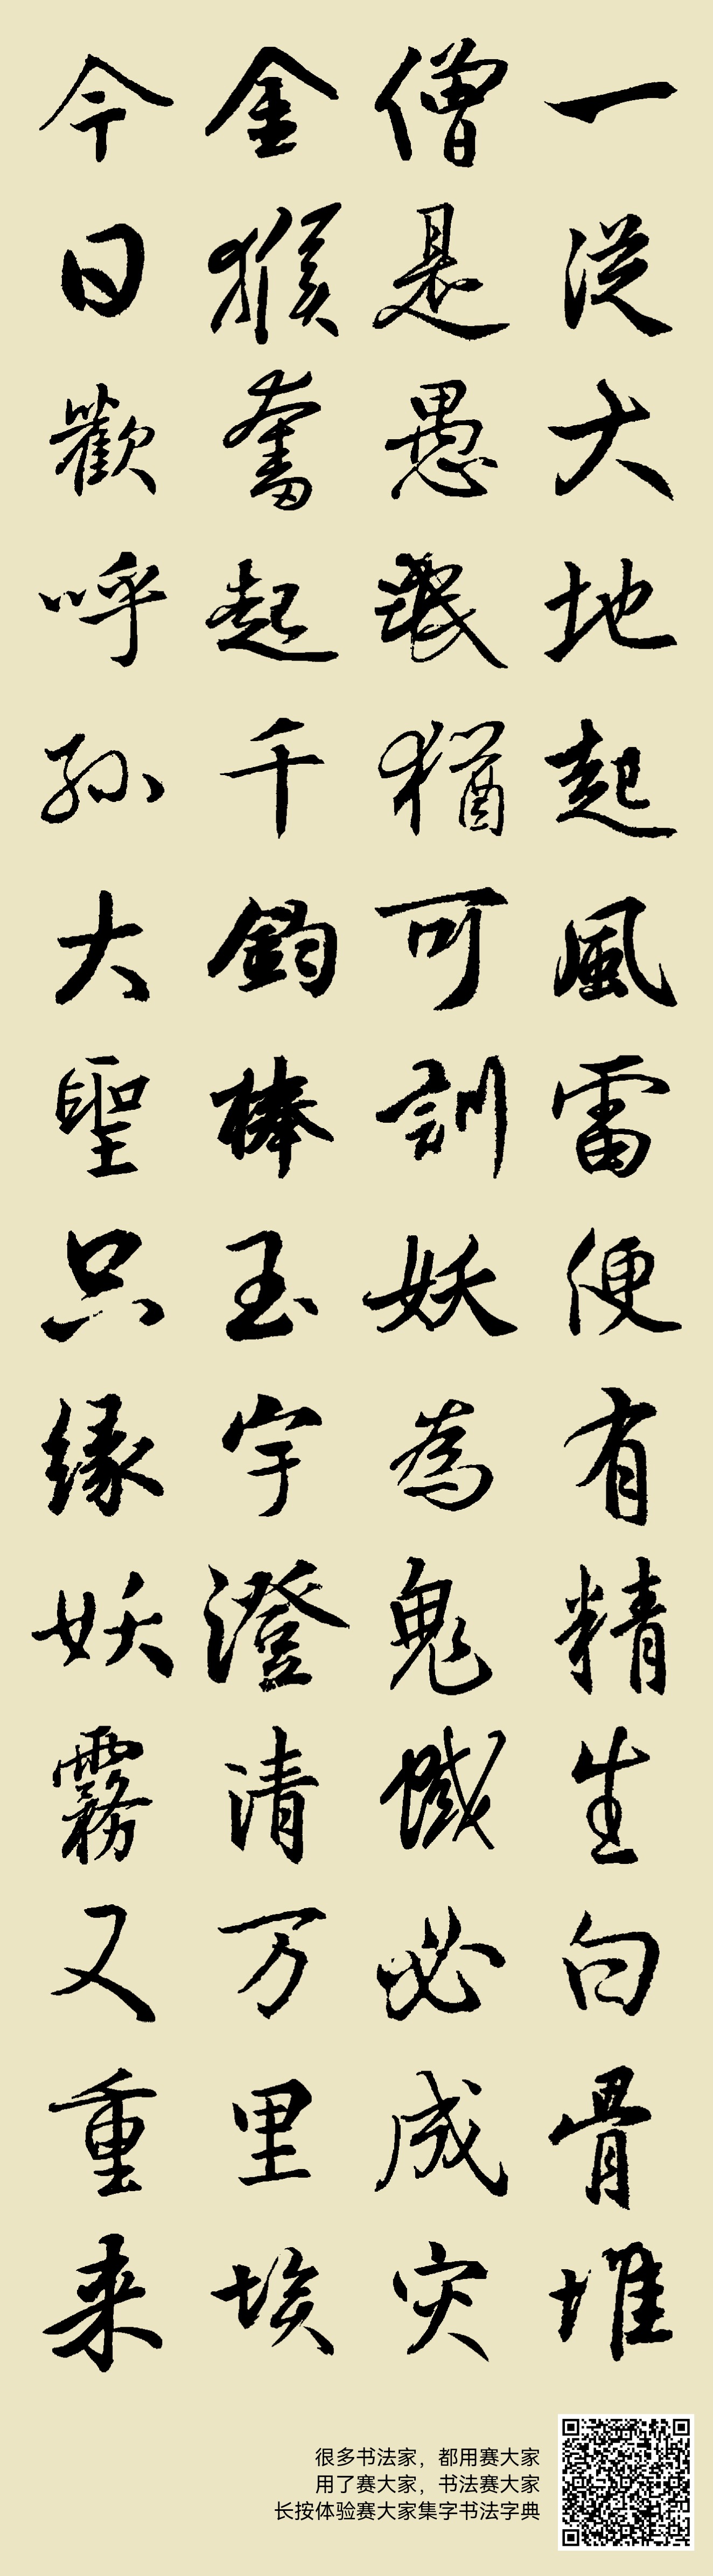 一従大地起風雷便有精生白骨堆
僧是愚氓猶可訓妖為鬼蜮必成災
金猴奮起千鈞棒玉宇澄清万里埃
今日歡呼孫大聖只緣妖霧又重来
很多书法家，都用赛大家
用了赛大家，书法赛大家
长按体验赛大家集字书法字典